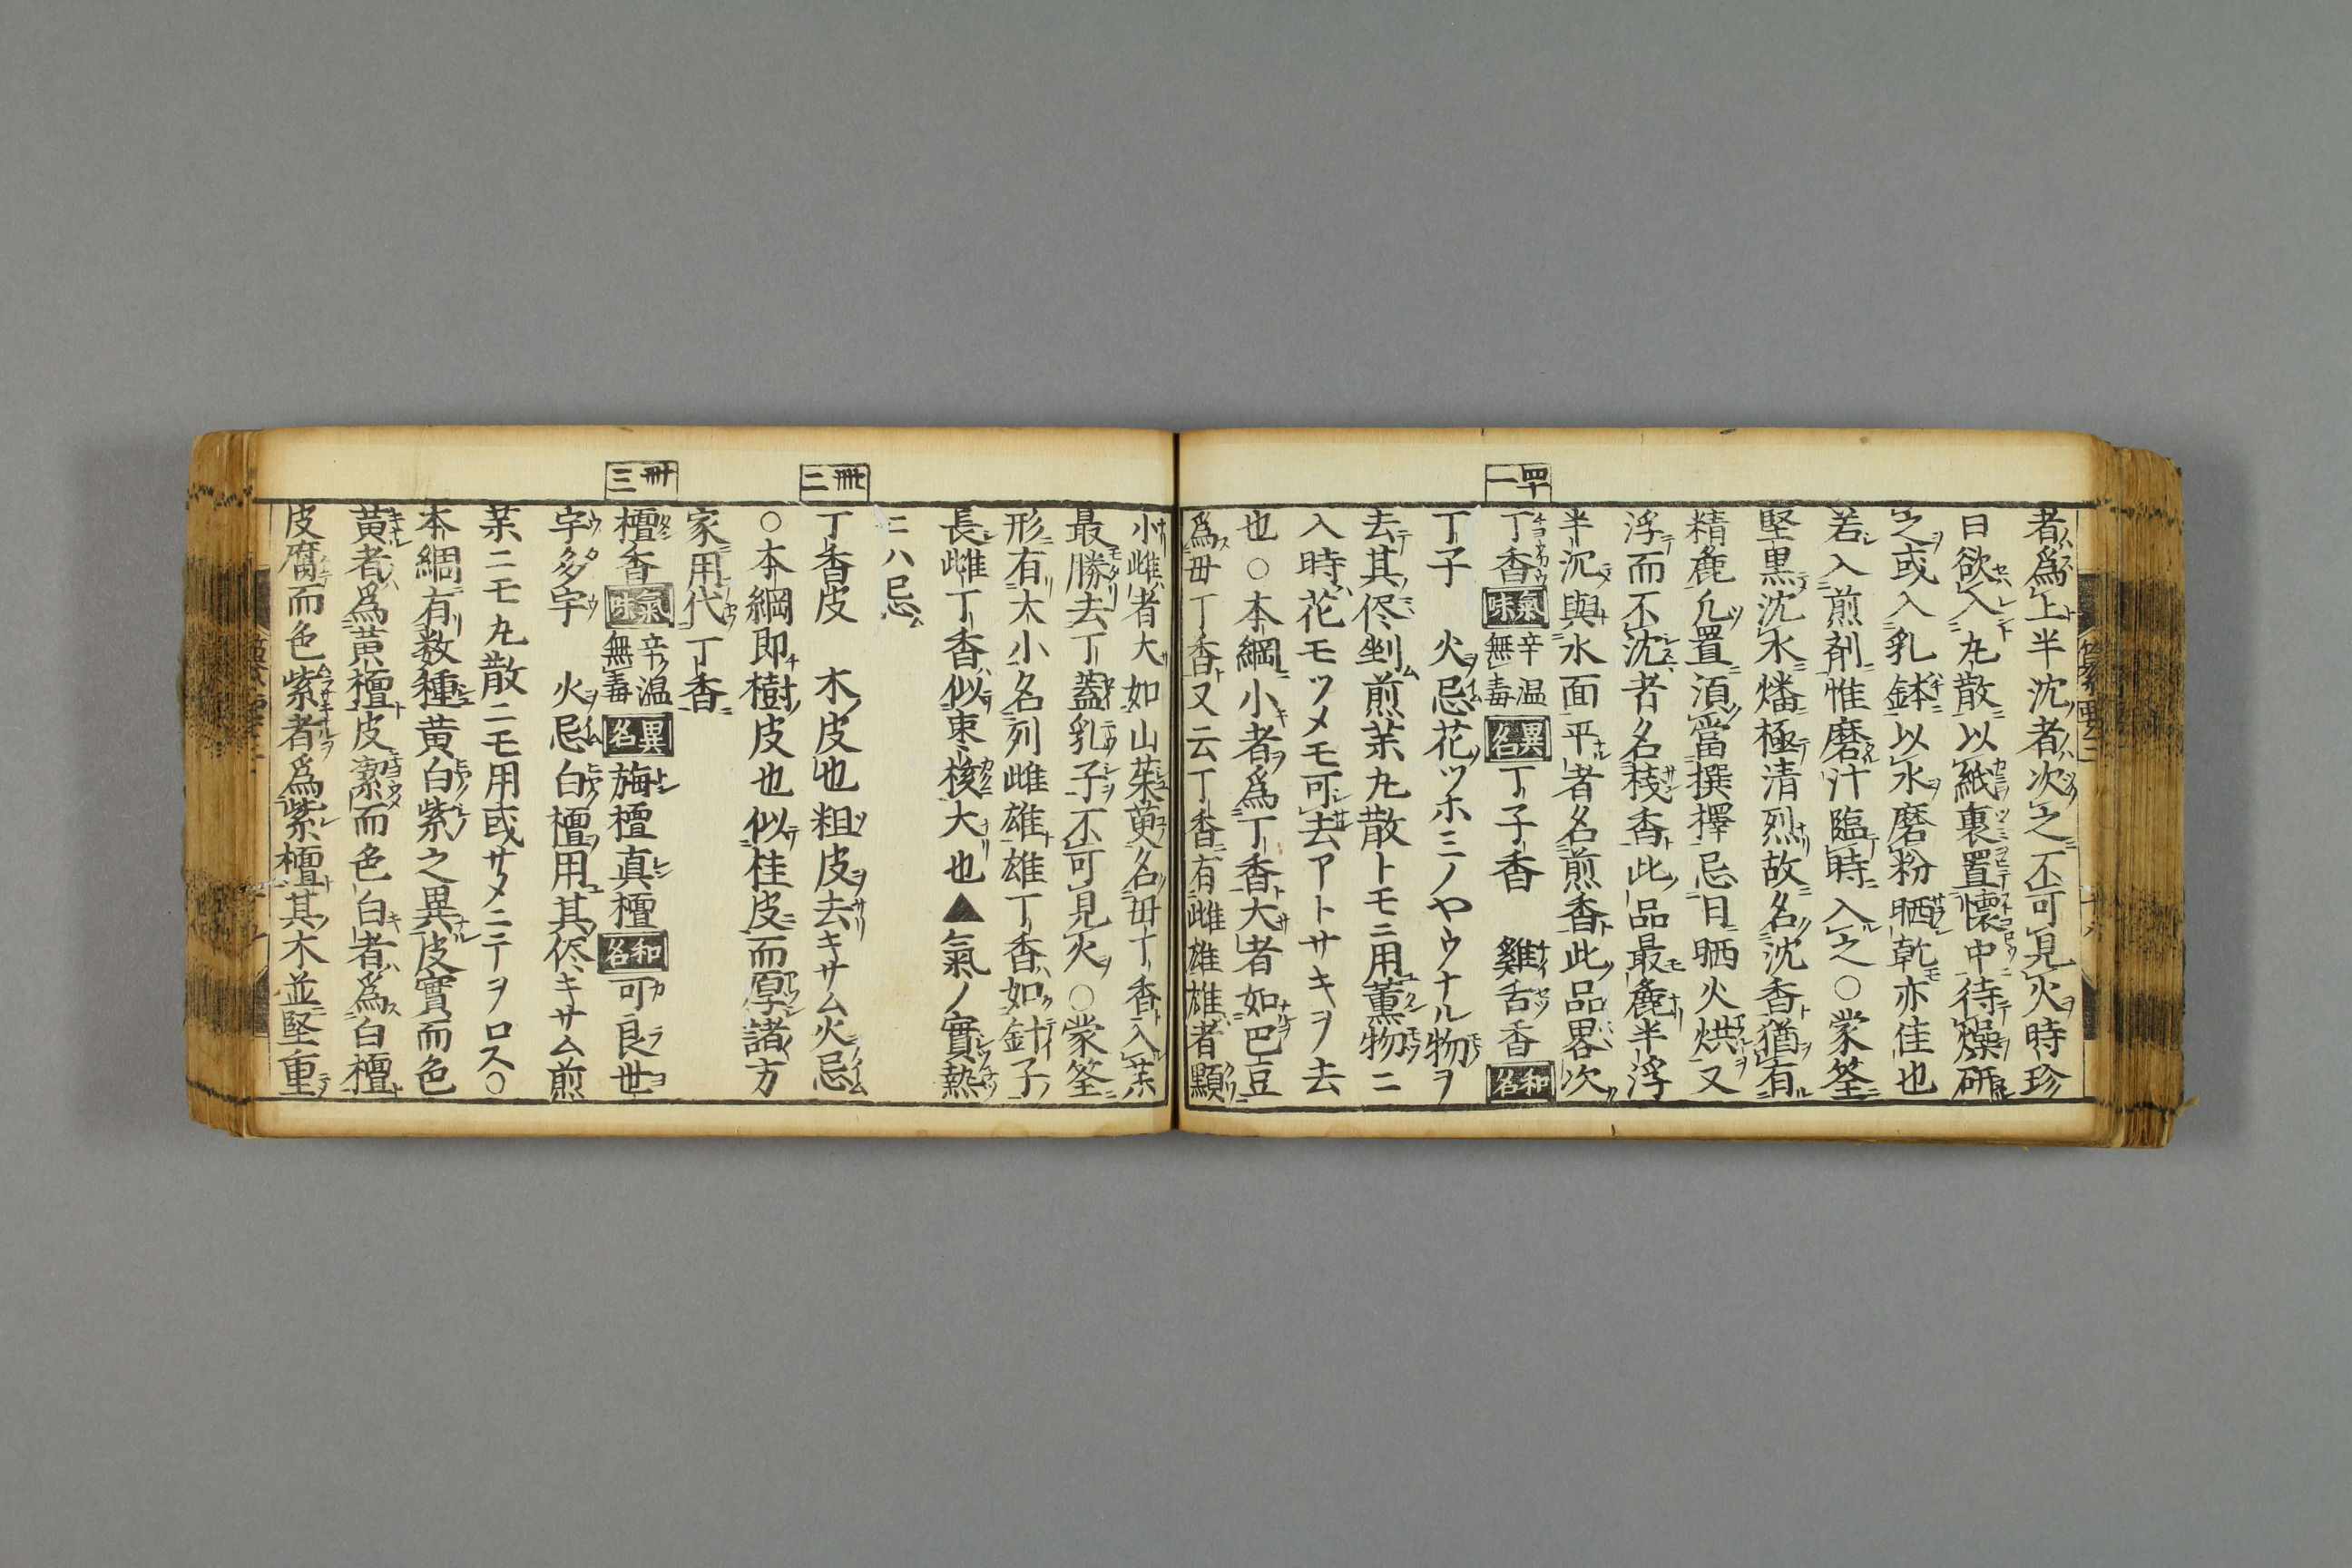 者爲上半沈者次之不可見火時珍
曰欲入丸散以紙裹置懷中待燥研
之或入乳鉢以水磨粉晒乾亦佳也
若入煎剤惟磨汁臨時入之○蒙筌
堅黒沈水燔極清烈故名沈香猶有
精麁凢置湏當撰擇忌日晒火烘又
浮而不沈者名棧香此品最麁半浮
半沉與水面平者名煎香此品畧次
四十一
丁香 氣味 辛温無毒 異名 丁子香 雞舌香 和名
丁子 火忌花ツホミノヤウナル物ヲ
去其侭剉煎薬丸散トモニ用薫物ニ
入時花モツメモ可去アトサキヲ去
也○本綱小者爲丁香大者如巴豆
爲毋丁香又云丁香有雌雄雄者顆
小雌者大如山茱萸名毋丁香入薬
最勝去丁蓋乳子不可見火○蒙筌
形有大小名列雌雄雄丁香如針子
長雌丁香似棗核大也▲氣ノ實熱
ニハ忌
卌二
丁香皮 木皮也粗皮去キサム火忌
○本綱即樹皮也似桂皮而厚諸方
家用代丁香
卌三
檀香 氣味 辛温無毒 異名 旃檀真檀 和名 可良世
宇多宇 火忌白檀用其侭キサム煎
薬ニモ丸散ニモ用或サメニテヲロス○
本綱有数種黄白紫之異皮實而色
黄者爲黄檀皮潔而色白者爲白檀
皮腐而色紫者爲紫檀其木並堅重